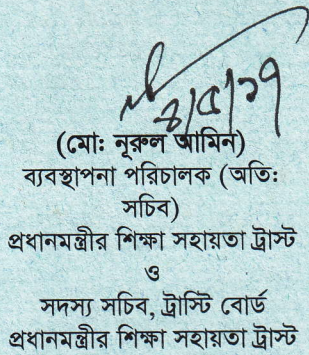 ৪/৫/১৭
(মো: নূরুল আমিন)
ব্যবস্থাপনা পরিচালক (অতি:
সচিব)
প্রধানমন্ত্রীর শিক্ষা সহায়তা ট্রাস্ট
ও
সদস্য সচিব, ট্রাস্টি বোর্ড
প্রধানমন্ত্রীর শিক্ষা সহায়তা ট্রাস্ট